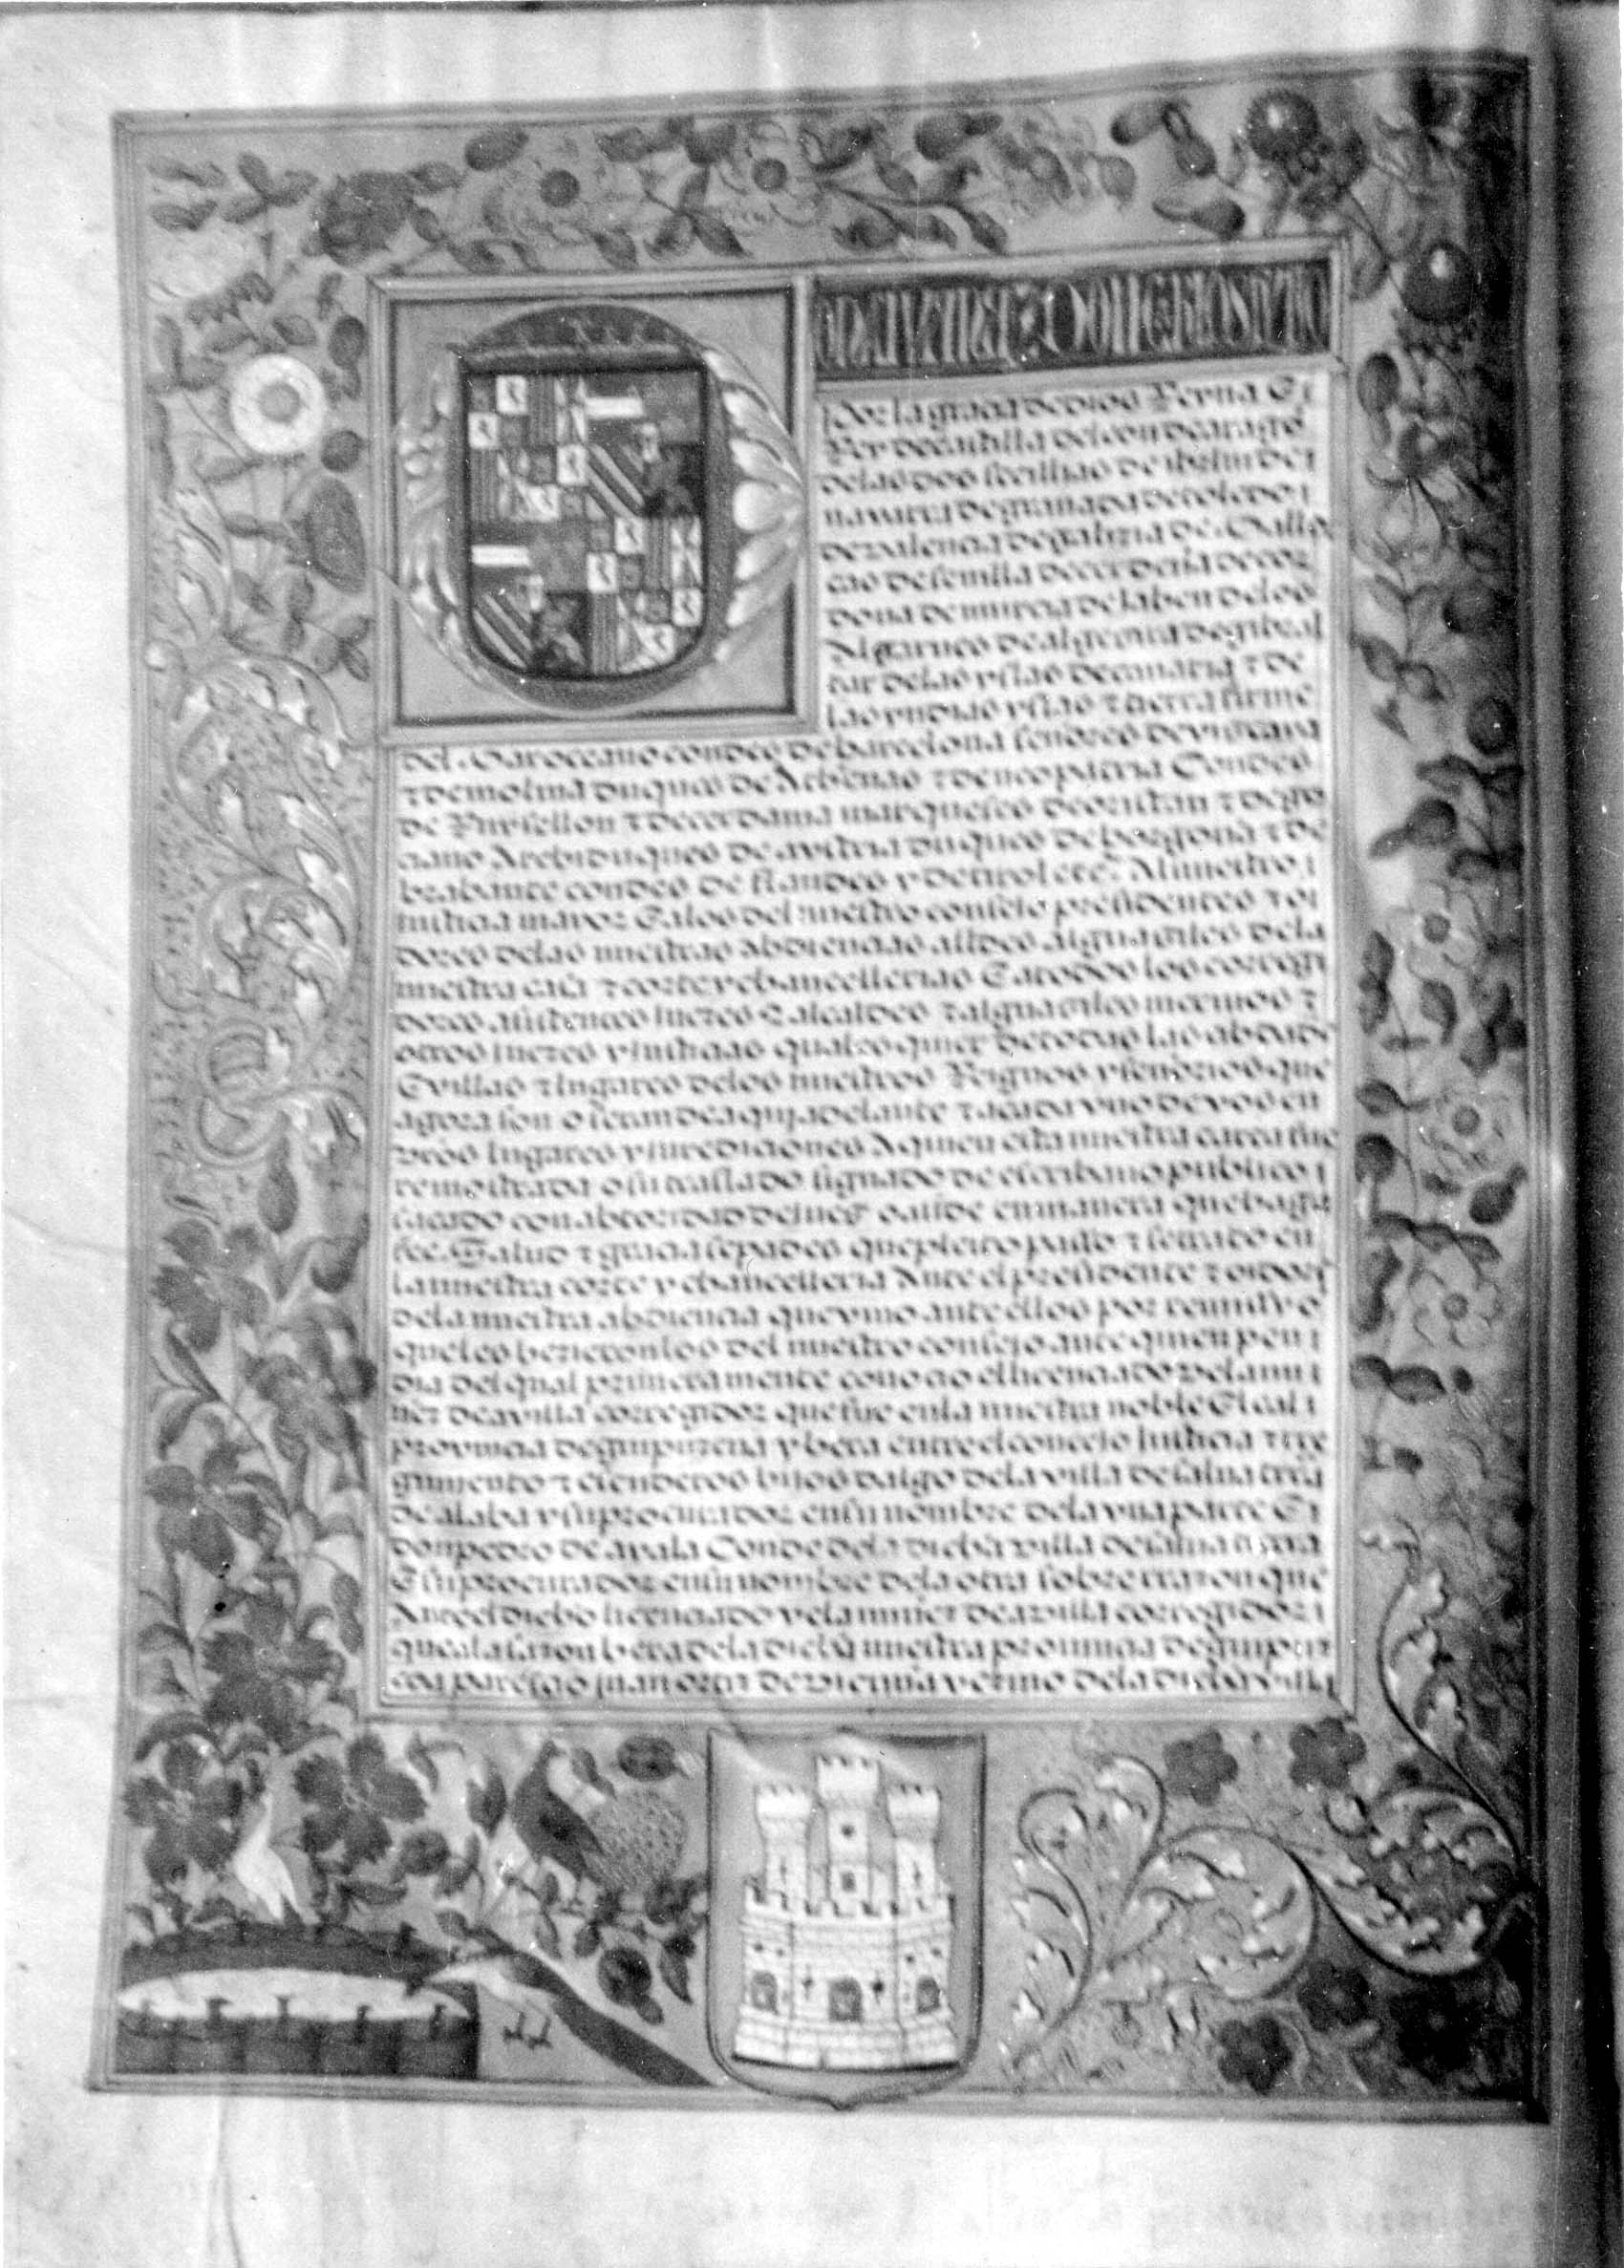 Por la graçia de dios Reyna E
Rey de castilla de leon de arago
delas dos seçilias de iherusalem de
nauarra de granada de toledo
de valençia de galizia de Mallor
cas de seuilla de cerdeña de cor
doua de murçia de iahen delos
Algarues de algezira de gibral
tar delas yslas de canaria τ de
las yndias yslas τ tierra firme
del Mar oçeano condes de barcelona señores de vizcaya
τ de molina duques de Athenas τ de neopatria Condes
de Ruysellon τ de cerdania marqueses de oristan τ de go
çiano Archiduques de avstria duques de borgoña τ de
brabante condes de flandes y de tirol etc. Al nuestro
justiçia mayor E alos del nuestro consejo presidentes τ oi
dores delas nuestras abdiençias alldes alguaziles dela
nuestra casa τ corte y chançellerias E a todos los corregi
dores asistentes juezes τ alcaldes τ alguaziles merinos τ
otros juezes y justiçias quales quier de todas las abdade
E villas τ lugares delos nuestros Reignos y señorios que
agora son o seran de aqui adelante τ a cada vno de vos en
vros lugares y jurediçiones A quien esta nuestra carta fue
re mostrada o su traslado signado de escribano publico
sacado con abtoridad de juez o allde en manera que haga
fee. Salud τ graçia sepades que pleito paso τ se trato en
la nuestra corte y chançelleria Ante el presidente τ oidores
dela nuestra abdiençia que vino ante ellos por remisyo
que les hezieron los del nuestro consejo ante quien pen
dia del qual primera mente conoçio el liçençiado vela nu
ñez de avilla corregidor que fue enla nuestra noble E leal
provinçia de guipuzcua y hera entre el conçejo justiçia τ rre
gimiento τ escuderos hijos dalgo dela villa de salua trra
de alaba y su procurador en su nombre dela vna parte E
don pedro de ayala Conde dela dicha villa de salua tierra
E su procurador en su nombre dela otra sobre rrazon que
Ante el dicho liçençiado vela nuñez de avilla corregidor
que ala sazon hera dela dicha nuestra prouinçia de guipuz
coa paresçio juan ortiz de vicuña vezino dela dicha villa